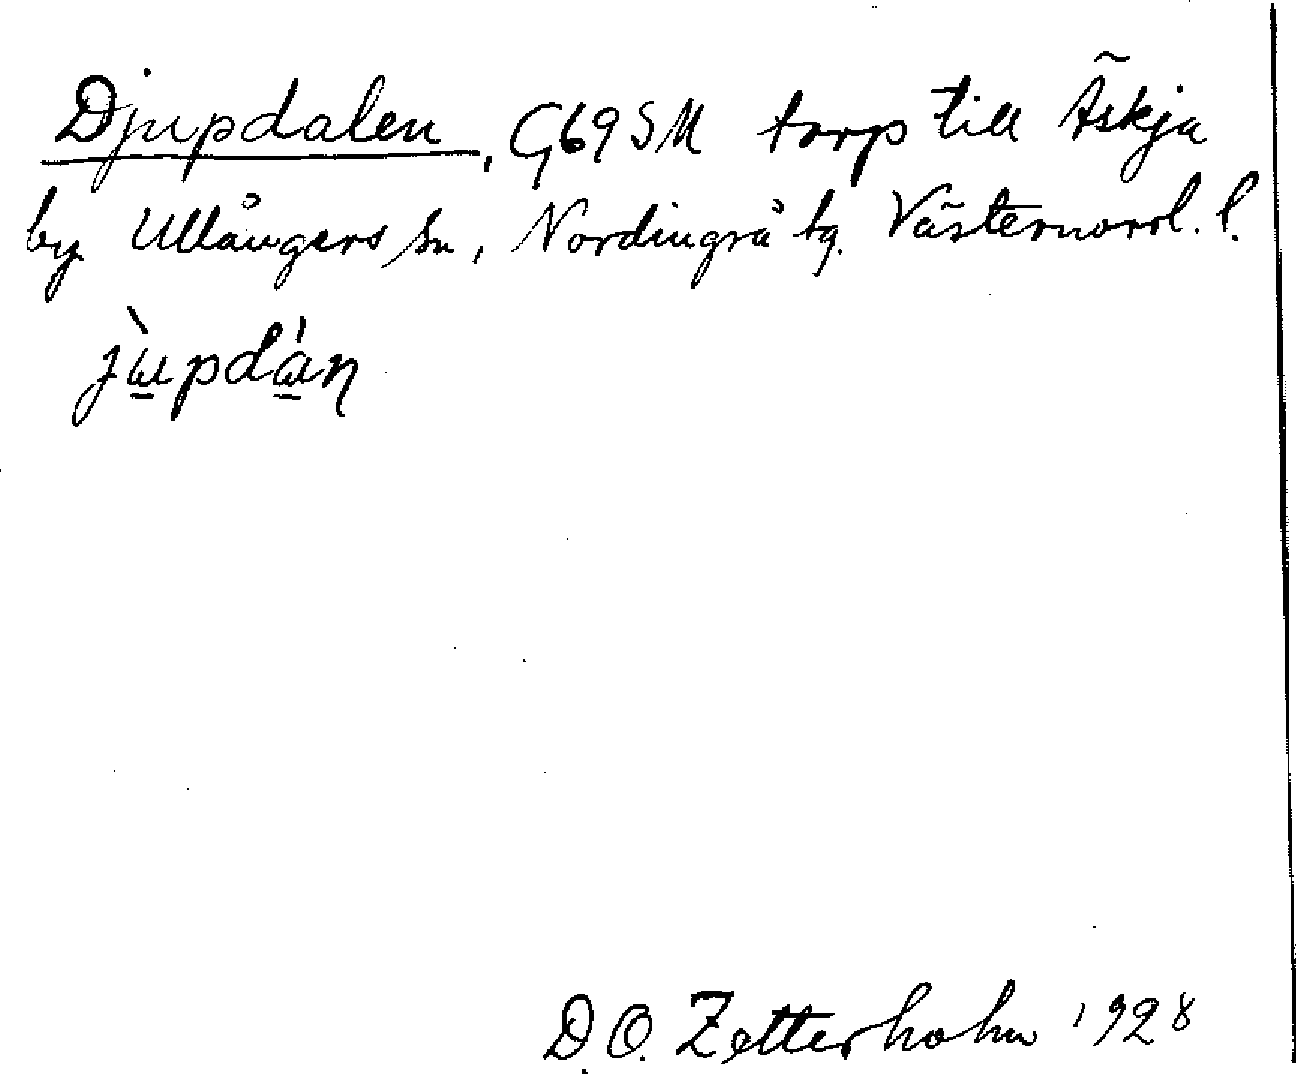 Djupdalen, G69SM torp till Äskja
by Ullångers sn, Nordingrå tg. Västernorrl. l.
jùpdán
D. O. Zetterholm 1928